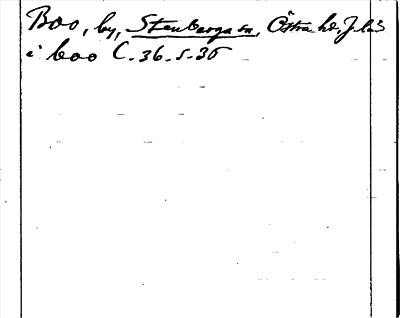 Boo, by, Stenberga sn, Östra hd, J. län
i boo C. 36. s. 36